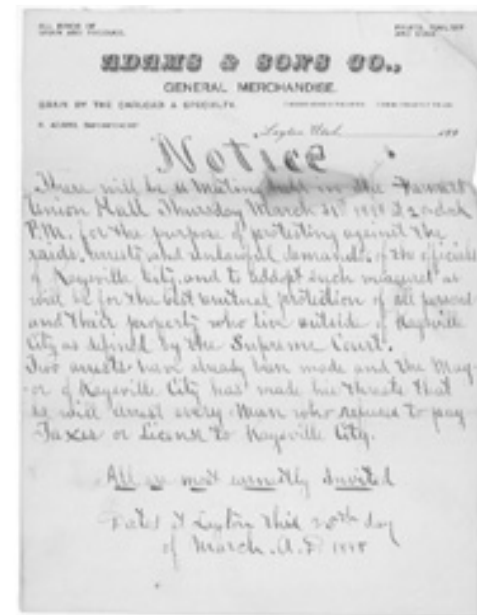 ALL KINDS OF
GRAIN AND PRODUCE.
ADAMS & SONS CO.,
GENERAL MERCHANDISE.
GRAIN BY THE CARLOAD A SPECIALTY.
Layton Utah 189
Notice
There will be a Meeting held in the Farmers
Union Hall Thursday March 31st 1898 at 2 o'clock
P.M. for the purpose of protesting against the
raids, arrests and unlawful demands of the officials
of Kaysville City, and to addopt such measures as
will be for the best mutual protection of all persons
and their property who live outside of Kaysville
City as defined by the Supreme Court.
Two arrests have already been made and the May-
or of Kaysville City has made his threats that
he will arrest every Man who refuses to pay
Taxes or License to Kaysville City.
All are most earnestly Invited
Dated at Layton this day
of March. A.D. 1898